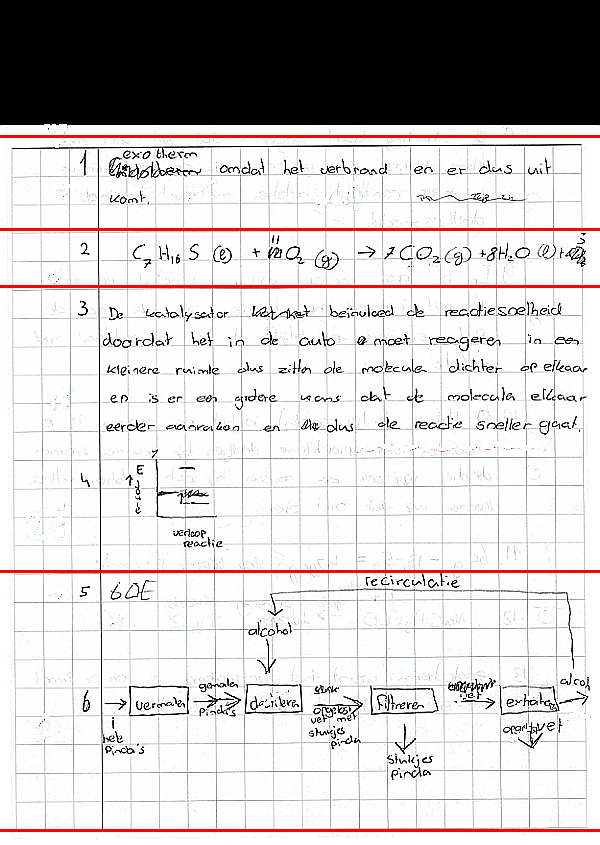 1 exotherm omdat het verbrand en er dus uit
komt.
2 C7H16S (l) + 11 O2 (g) → 7CO2 (g) + 8H2O (l) +
3 De katalysator beïnvloed de reactiesnelheid
doordat het in de auto moet reageren in een
kleinere ruimte dus zitten de molecula dichter op elkaar
en is er een grotere kans dat de molecula elkaar
eerder aanraken en dus de reactie sneller gaat.
4 E
verloop
reactie
5 60E
recirculatie
alcohol
6 → vermalen gemalen pinda's filtreren vet alcohol
hele
pinda's
opgelost
vet met
stukjes
pinda
stukjes
pinda
vet